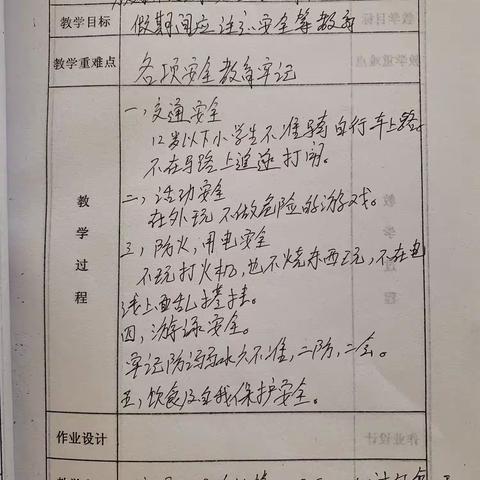 教学目标
假期间应注意安全等教育
教学重难点
各项安全教育牢记
教学过程
一，交通安全
12岁以下小学生不准骑自行车上路，
不在马路上追逐打闹。
二，活动安全
在外玩不做危险的游戏。
三，防火，用电安全
不玩打火机，也不烧东西玩，不在电
线上乱搭挂。
四，游泳安全。
牢记防溺水六不准，二防，二会。
五，饮食及自我保护安全。
作业设计